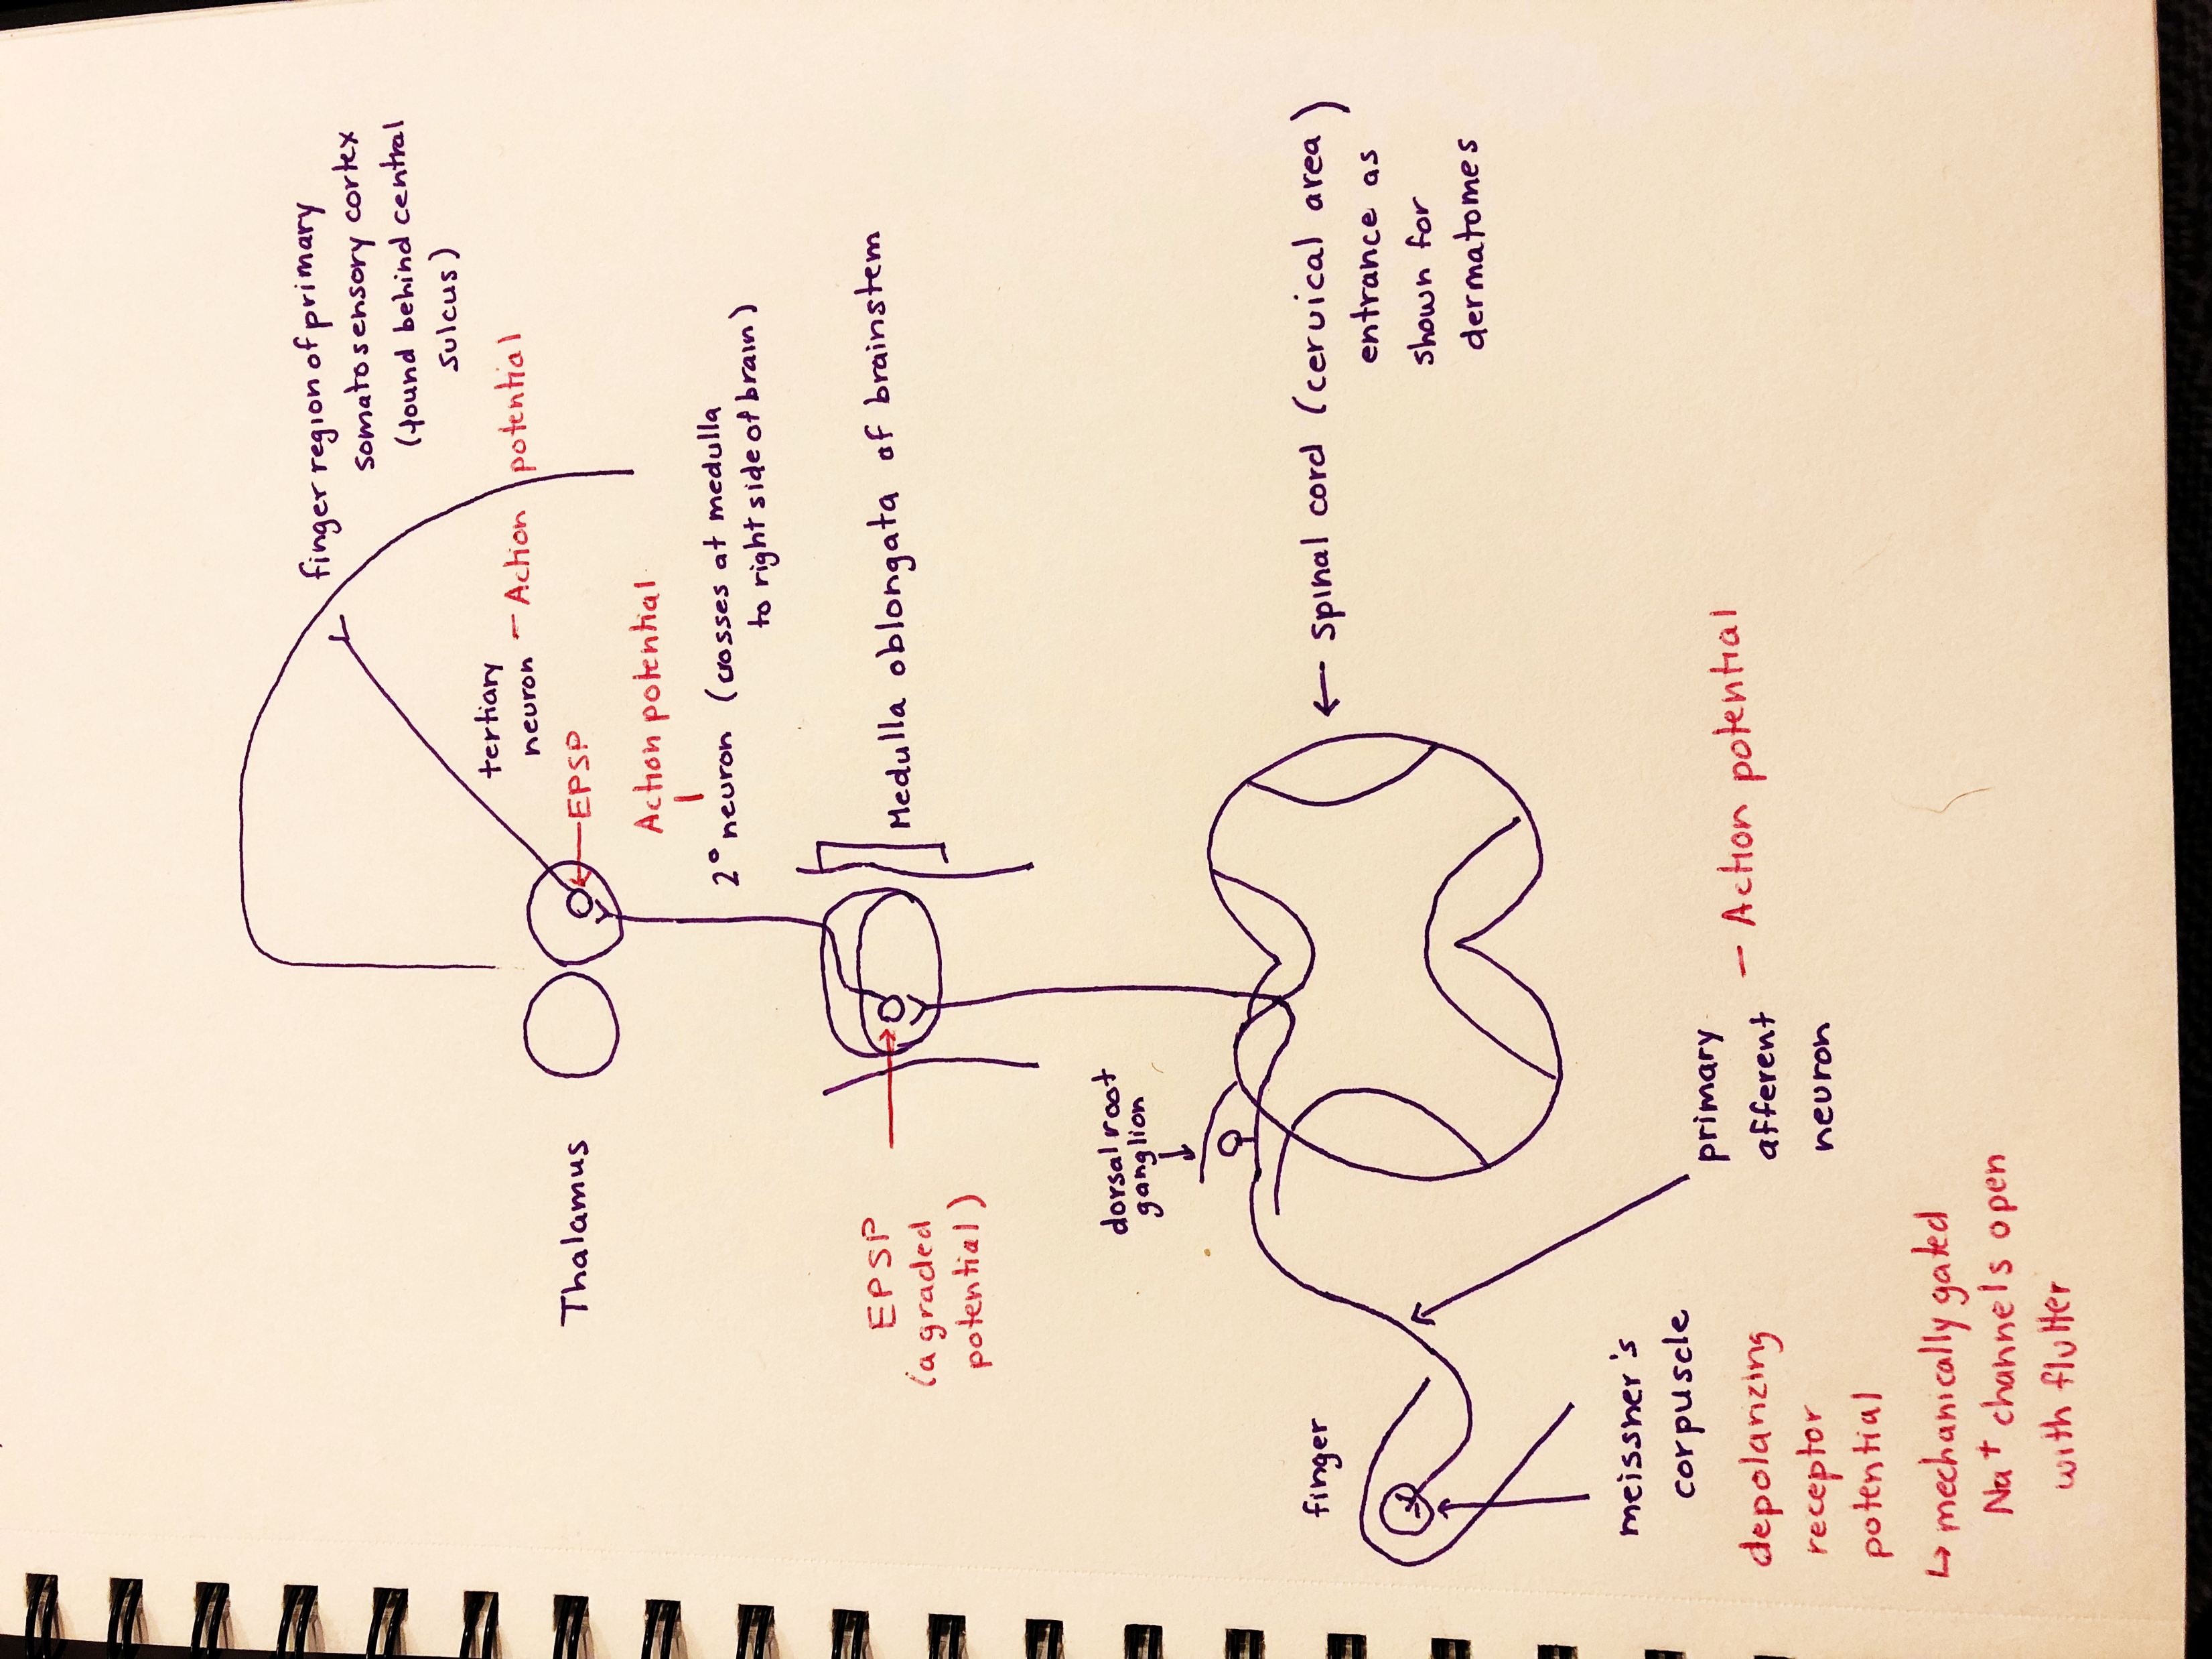 finger region of primary
somatosensory cortex
(found behind central
sulcus)
tertiary
neuron - Action potential
EPSP
Action potential
2° neuron (crosses at medulla
to right side of brain)
Thalamus
Medulla oblongata of brainstem
EPSP
(a graded
potential)
dorsal root
ganglion
← Spinal cord (cervical area)
entrance as
shown for
dermatomes
finger
primary
afferent - Action potential
neuron
meissner's
corpuscle
depolarizing
receptor
potential
↳ mechanically gated
Na+ channels open
with flutter